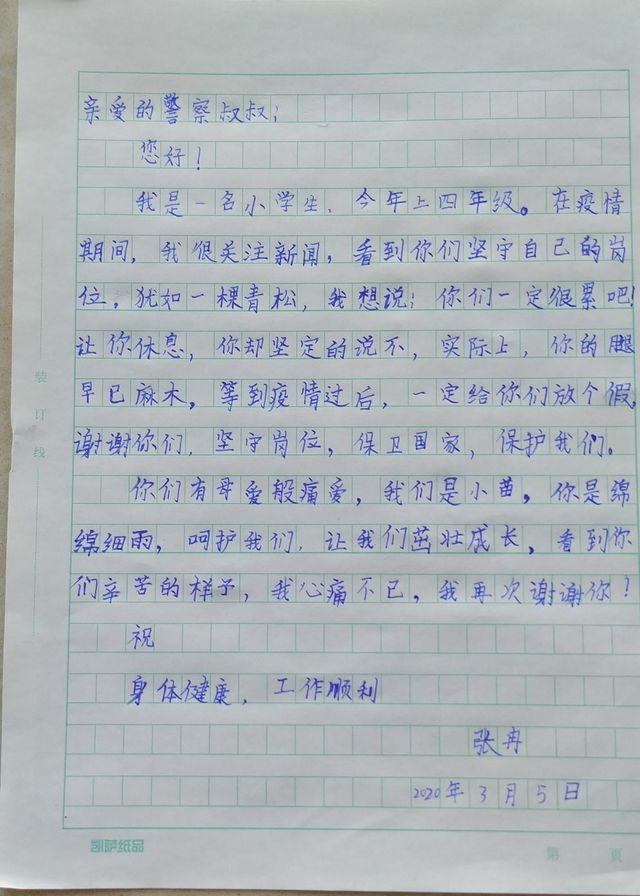 亲爱的警察叔叔：
您好！
我是一名小学生，今年上四年级。在疫情
期间，我很关注新闻，看到你们坚守自己的岗
位，犹如一棵青松，我想说：你们一定很累吧！
让你休息，你却坚定的说不，实际上，你的腿
早已麻木，等到疫情过后，一定给你们放个假，
谢谢你们，坚守岗位，保卫国家，保护我们。
你们有母爱般痛爱，我们是小苗，你是绵
绵细雨，呵护我们，让我们茁壮成长，看到你
们辛苦的样子，我心痛不已，我再次谢谢你！
祝
身体健康，工作顺利
张冉
2020年3月5日
装订线
凯萨纸品
第 页